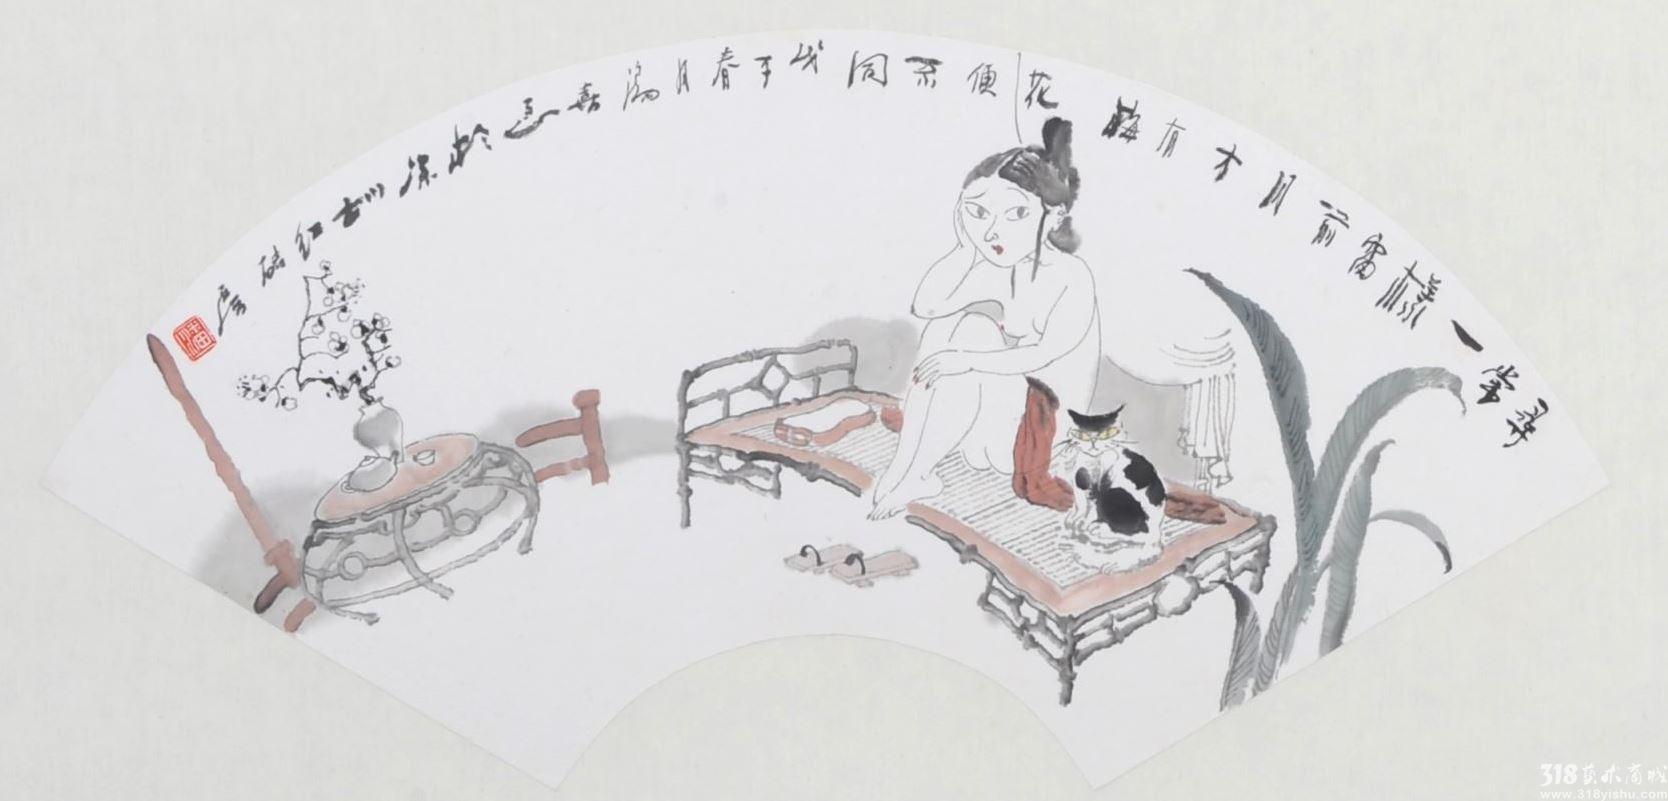 尋常一樣窗前月才有梅花便不同戊子春月潘喜良於深圳
潘
318艺术商城
www.318yishu.com